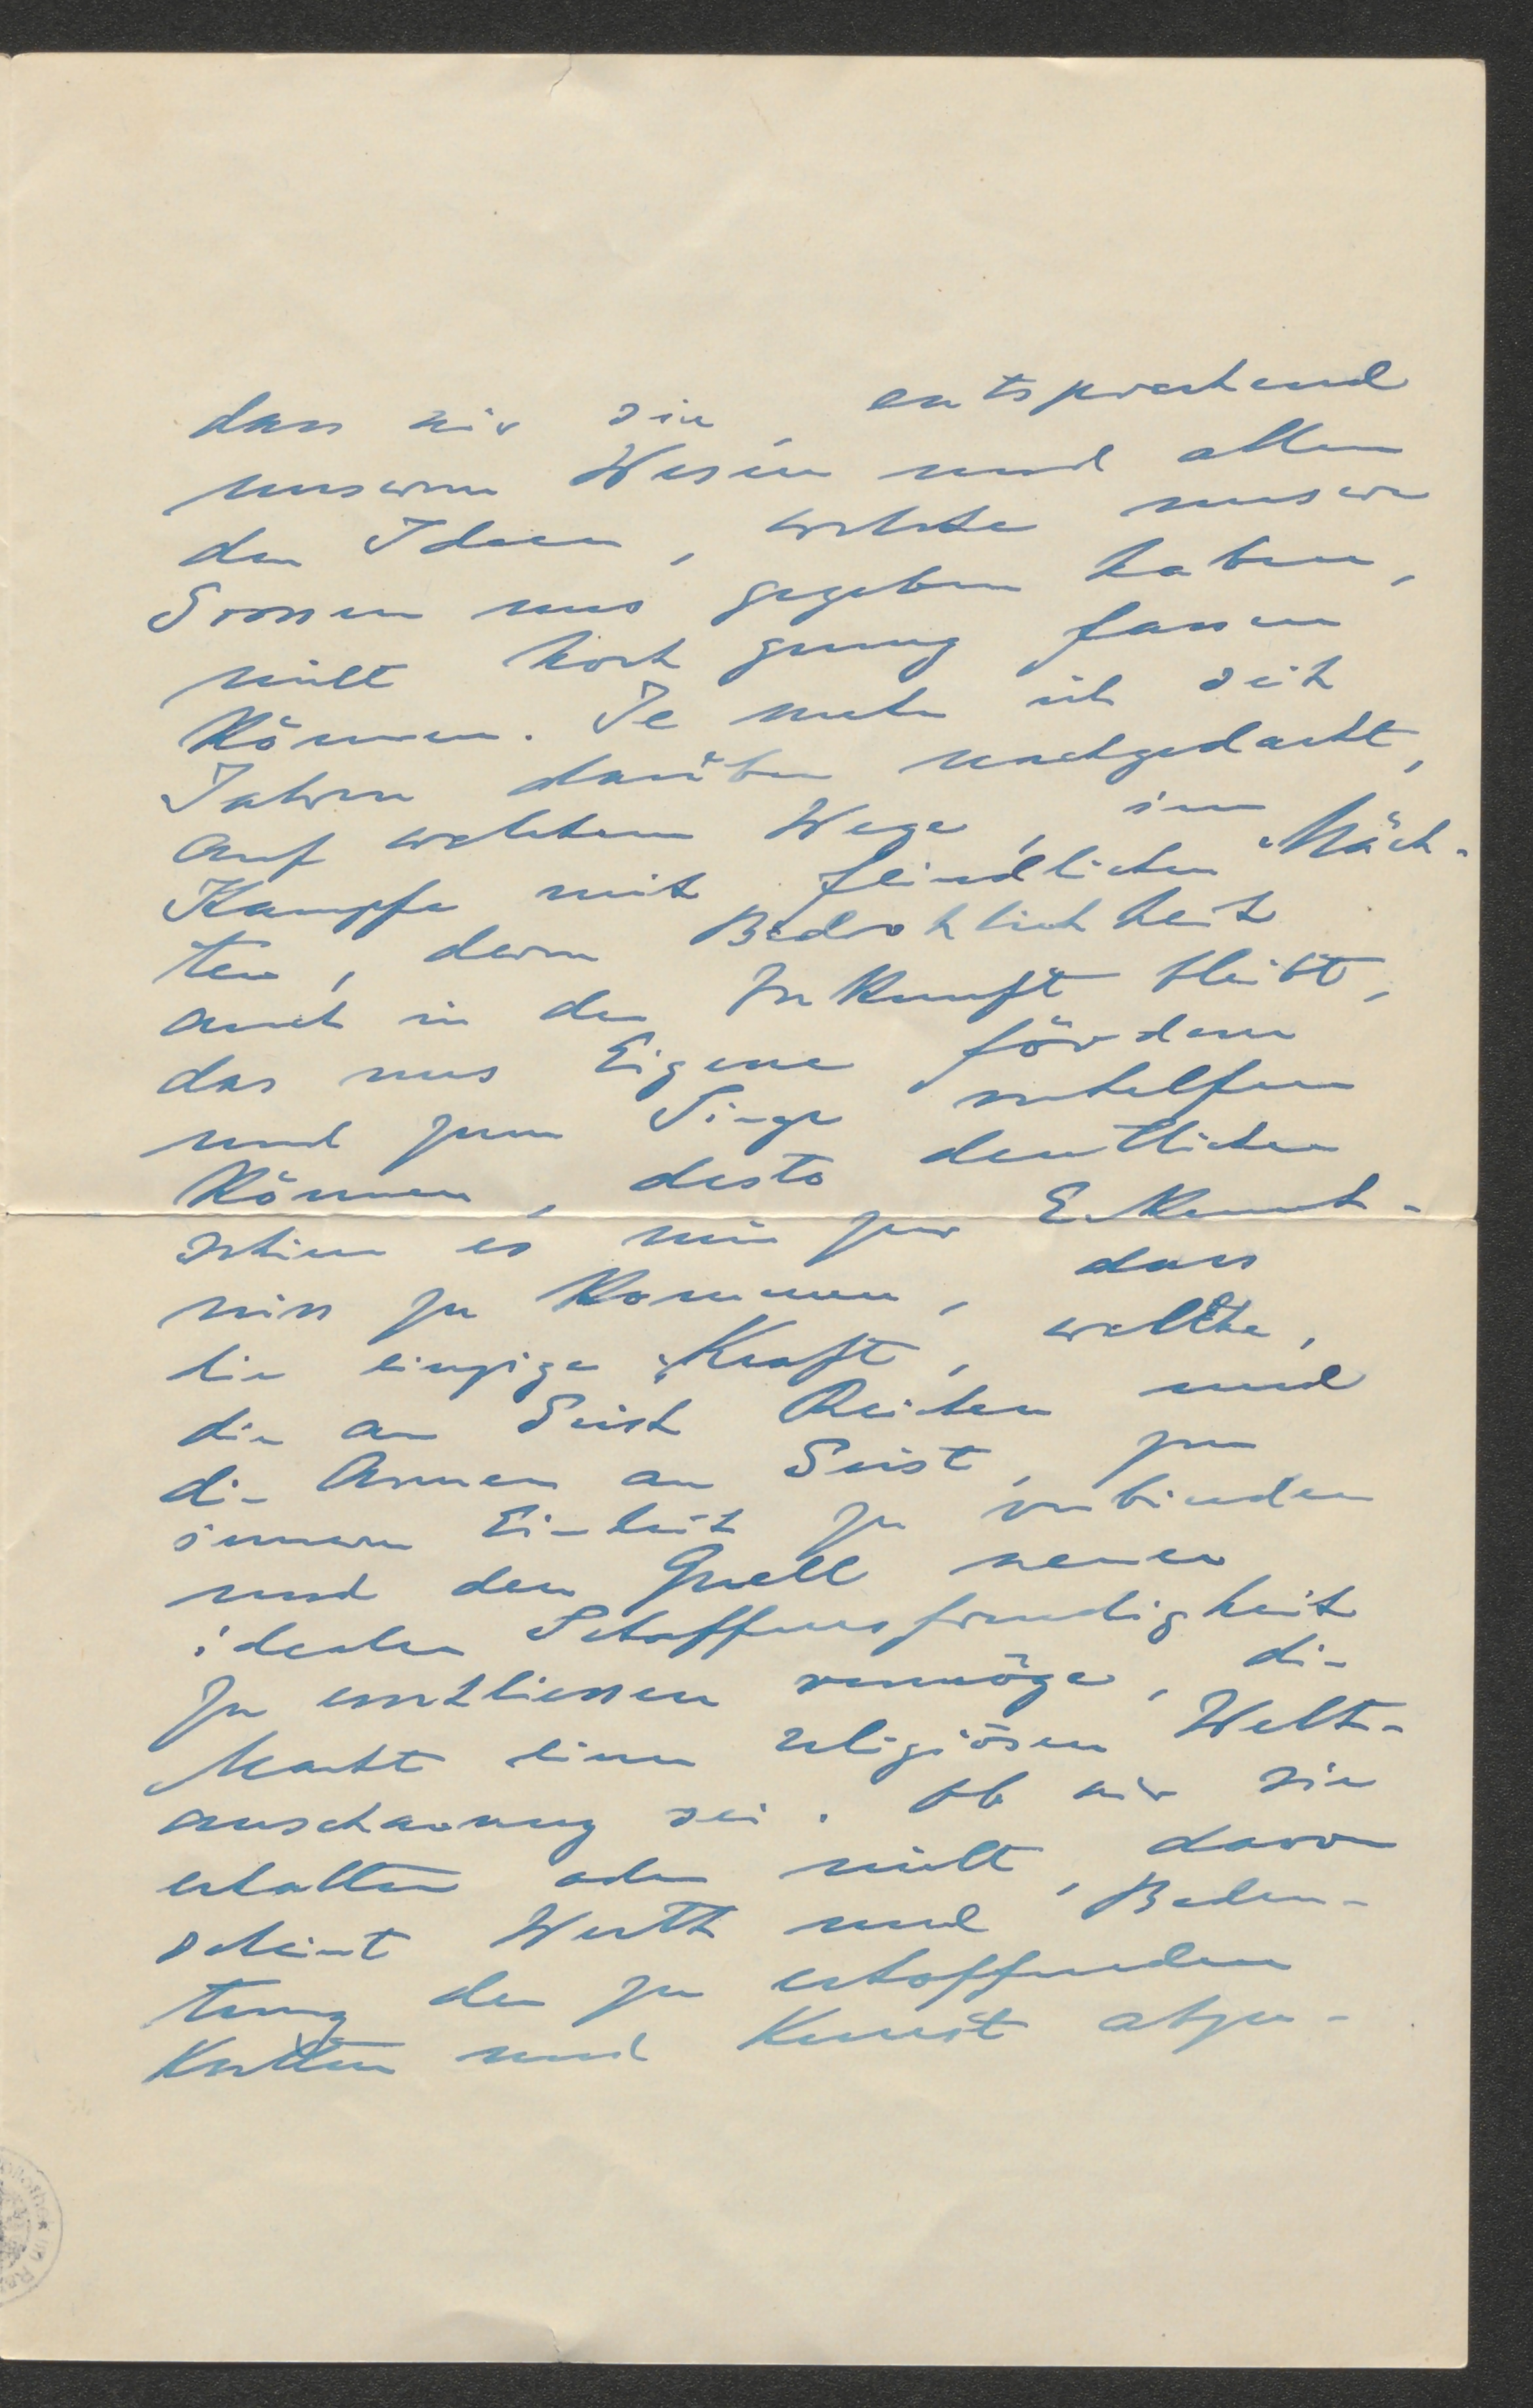 dass wir sie, entsprechend
unserem Wesen und allen
den Ideen, welche unsere
Grossen uns gegeben haben,
nicht hoch genug fassen
können. Je mehr ich seit
Jahren darüber nachgedacht,
auf welchem Wege, im
Kampfe mit feindlichen Mäch-
ten, deren Bedrohlichkeit
auch in der Zukunft bleibt,
das uns Eigene fördern
und zum Siege verhelfen
können, desto deutlicher
schien es mir zur Erkennt-
niss zu kommen, dass
die einzige Kraft, welche,
die an Geist Reichen und
die Armen an Geist, zu
innerer Einheit zu verbinden
und den Quell neuer
idealer Schaffensfreudigkeit
zu erschliessen vermöge, die
Macht einer religiösen Welt-
anschauung sei. Ob wir sie
erhalten oder nicht, davon
scheint Werth und Bedeu-
tung der zu erhoffenden
Kultur und Kunst abzu-